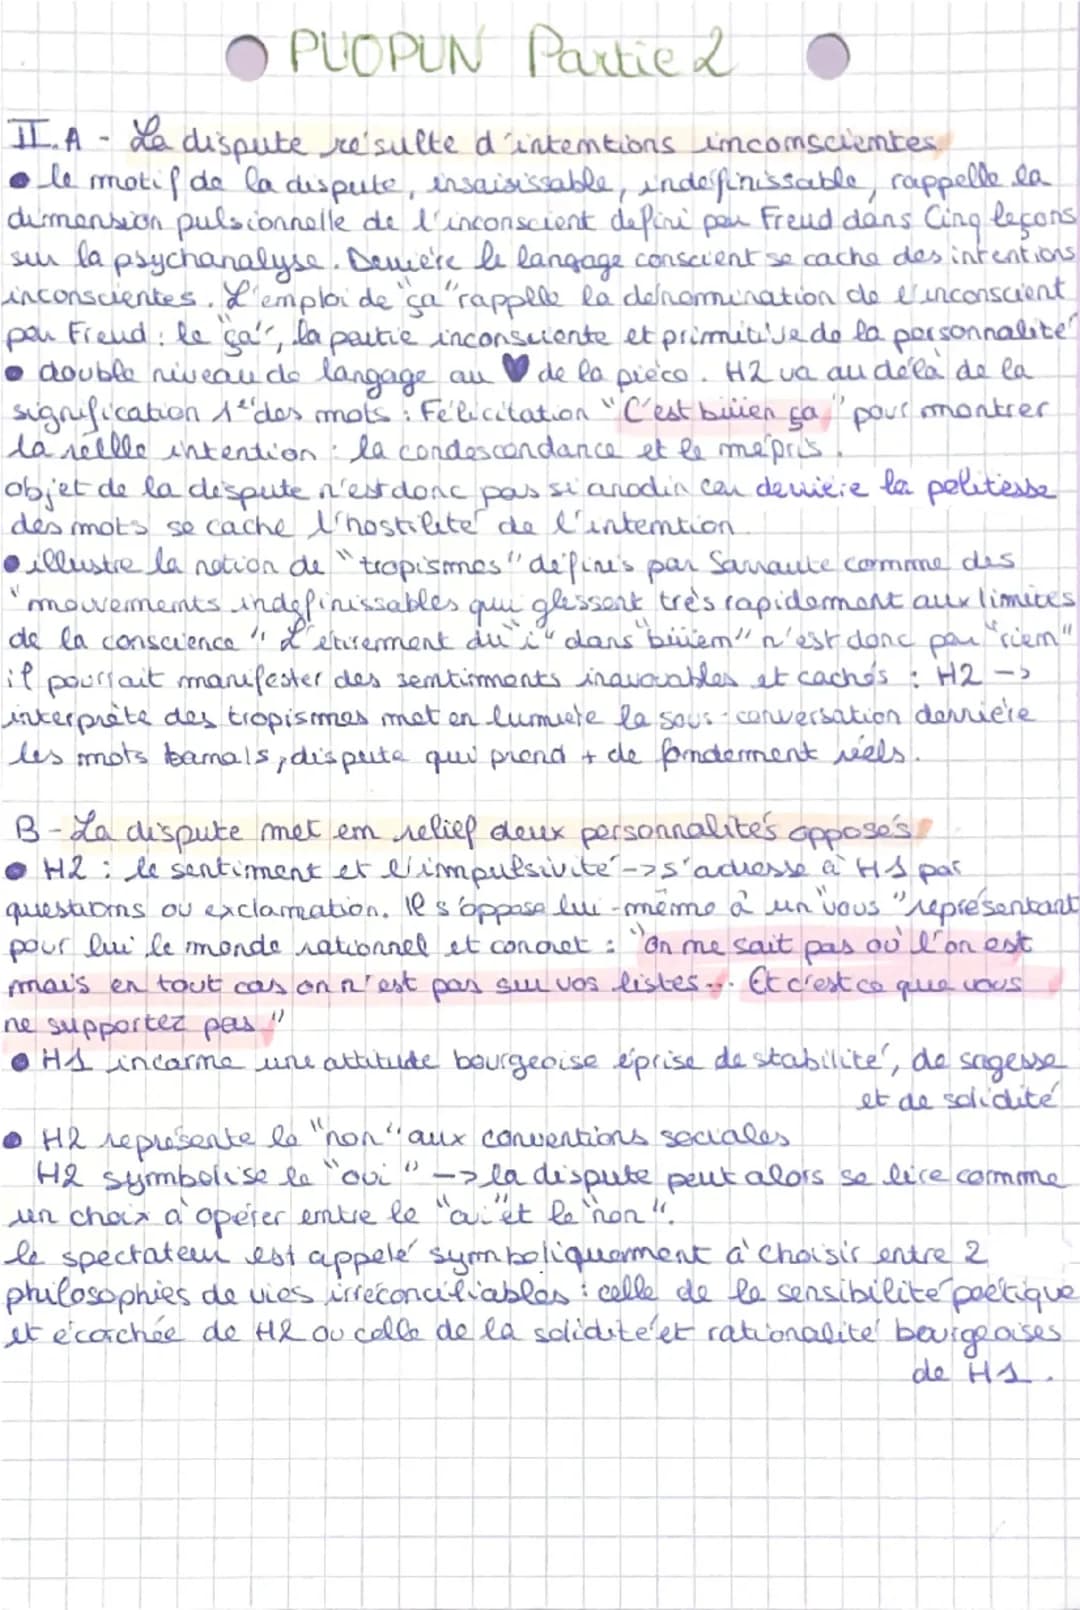 PUOPUN Partie 2
II.A - La dispute résulte d'intentions inconscientes
• le motif de la dispute, insaisissable, indéfinissable, rappelle la
dimension pulsionnelle de l'inconscient défini par Freud dans Cinq leçons
sur la psychanalyse. Derrière le langage conscient se cache des intentions
inconscientes. L'emploi de "ça" rappelle la dénomination de l'inconscient
par Freud : le "ça", la partie inconsciente et primitive de la personnalité
• double niveau de langage au ♥ de la pièce. H2 va au delà de la
signification 1ère des mots : Félicitation "C'est biiien ça" pour montrer
la réelle intention : la condescendance et le mépris.
objet de la dispute n'est donc pas si anodin car derrière la politesse
des mots se cache l'hostilité de l'intention.
• illustre la notion de "tropismes" définis par Sarraute comme des
"mouvements indéfinissables qui glissent très rapidement aux limites
de la conscience" L'étirement du "i" dans "biiien" n'est donc pau "rien"
il pourrait manifester des sentiments inavouables et cachés : H2 ->
interprète des tropismes met en lumière la sous-conversation derrière
les mots banals, dispute qui prend + de fondement réels.
B - La dispute met en relief deux personnalités opposés
• H2 : le sentiment et l'impulsivité -> s'adresse à H1 par
questions ou exclamation. Il s'oppose lui-même à un "vous" représentant
pour lui le monde rationnel et concret : "On ne sait pas où l'on est
mais en tout cas on n'est pas sur vos listes... Et c'est ce que vous
ne supportez pas"
• H1 incarne une attitude bourgeoise éprise de stabilité, de sagesse
et de solidité
• H2 représente le "non" aux conventions sociales
H2 symbolise le "oui" -> la dispute peut alors se lire comme
un choix à opérer entre le "oui" et le "non".
le spectateur est appelé symboliquement à choisir entre 2
philosophies de vies irréconciliables : celle de la sensibilité poétique
et écorchée de H2 ou celle de la solidité et rationalité bourgeoises
de H1.